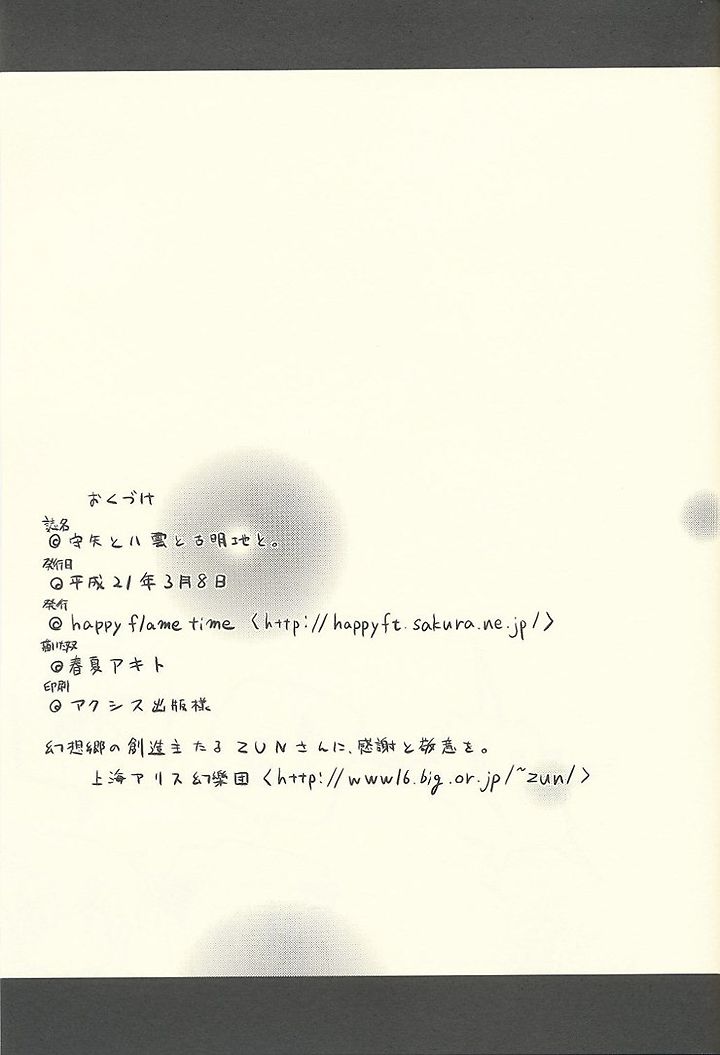 おくづけ
誌名
◎守矢と八雲と古明地と。
発行日
◎平成21年3月8日
発行
◎happy flame time 〈http://happyft.sakura.ne.jp/〉
描いた奴
◎春夏アキト
印刷
◎アクシス出版様
幻想郷の創造主たるZUNさんに、感謝と敬意を。
上海アリス幻樂団〈http://www16.big.or.jp/~zun/〉